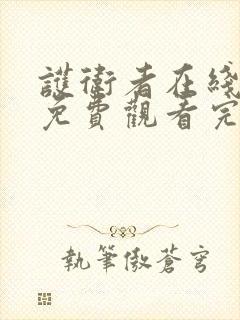 護衛者在綫
免費觀看完
執筆傲蒼穹